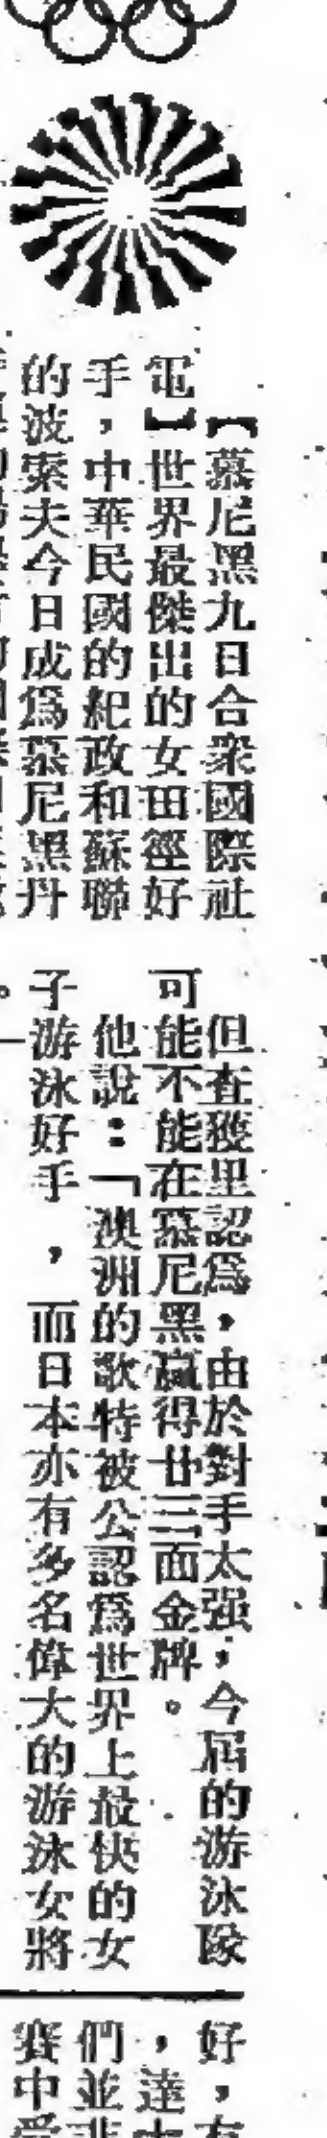 【慕尼黑九日合衆國際社
電】世界最傑出的女田徑好
手，中華民國的紀政和蘇聯
的波索夫今日成爲慕尼黑丹
但查獲里認爲，由於對手太强，今屆的游泳隊
可能不能在慕尼黑贏得廿三面金牌。
他說：「澳洲的歌特被公認爲世界上最快的女
子游泳好手，而日本亦有多名偉大的游泳女將
。
好，有
，達
們並非
賽中受